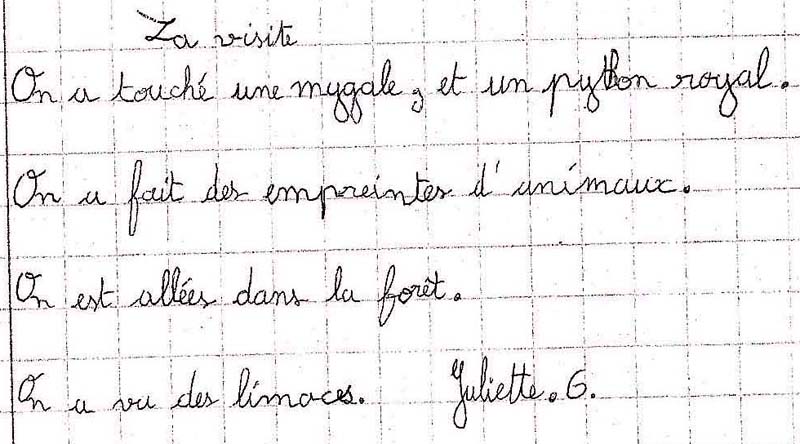 La visite
On a touché une mygale, et un python royal.
On a fait des empreintes d'animaux.
On est allées dans la forêt.
On a vu des limaces. Juliette. G.